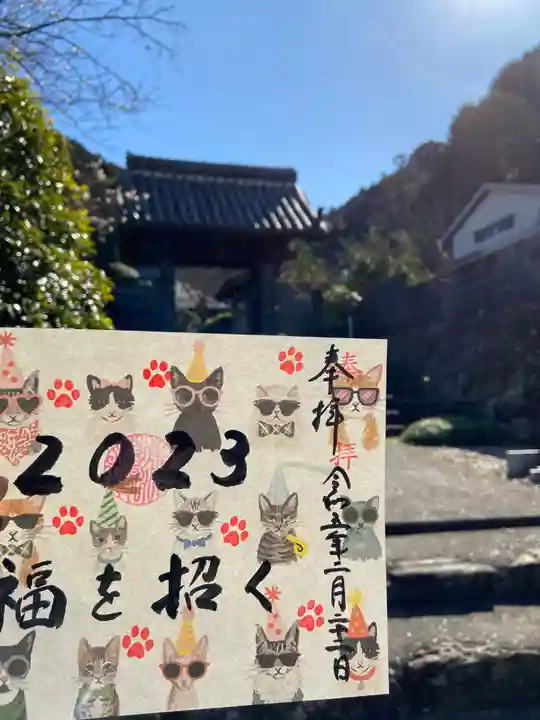 奉拝
奉拝
令和五年二月二十二日
2023
福を招く